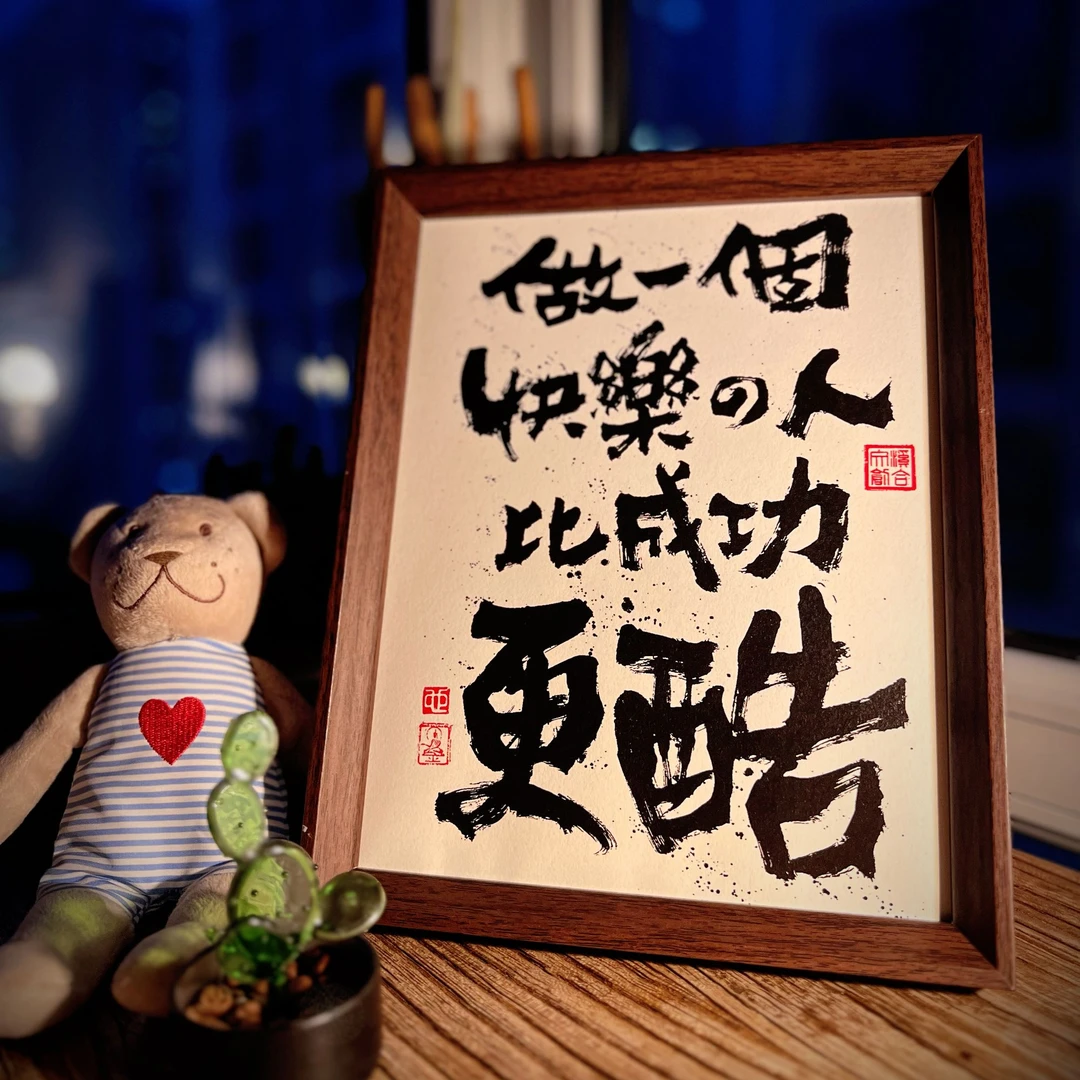 做一個
快樂の人
比成功
更酷